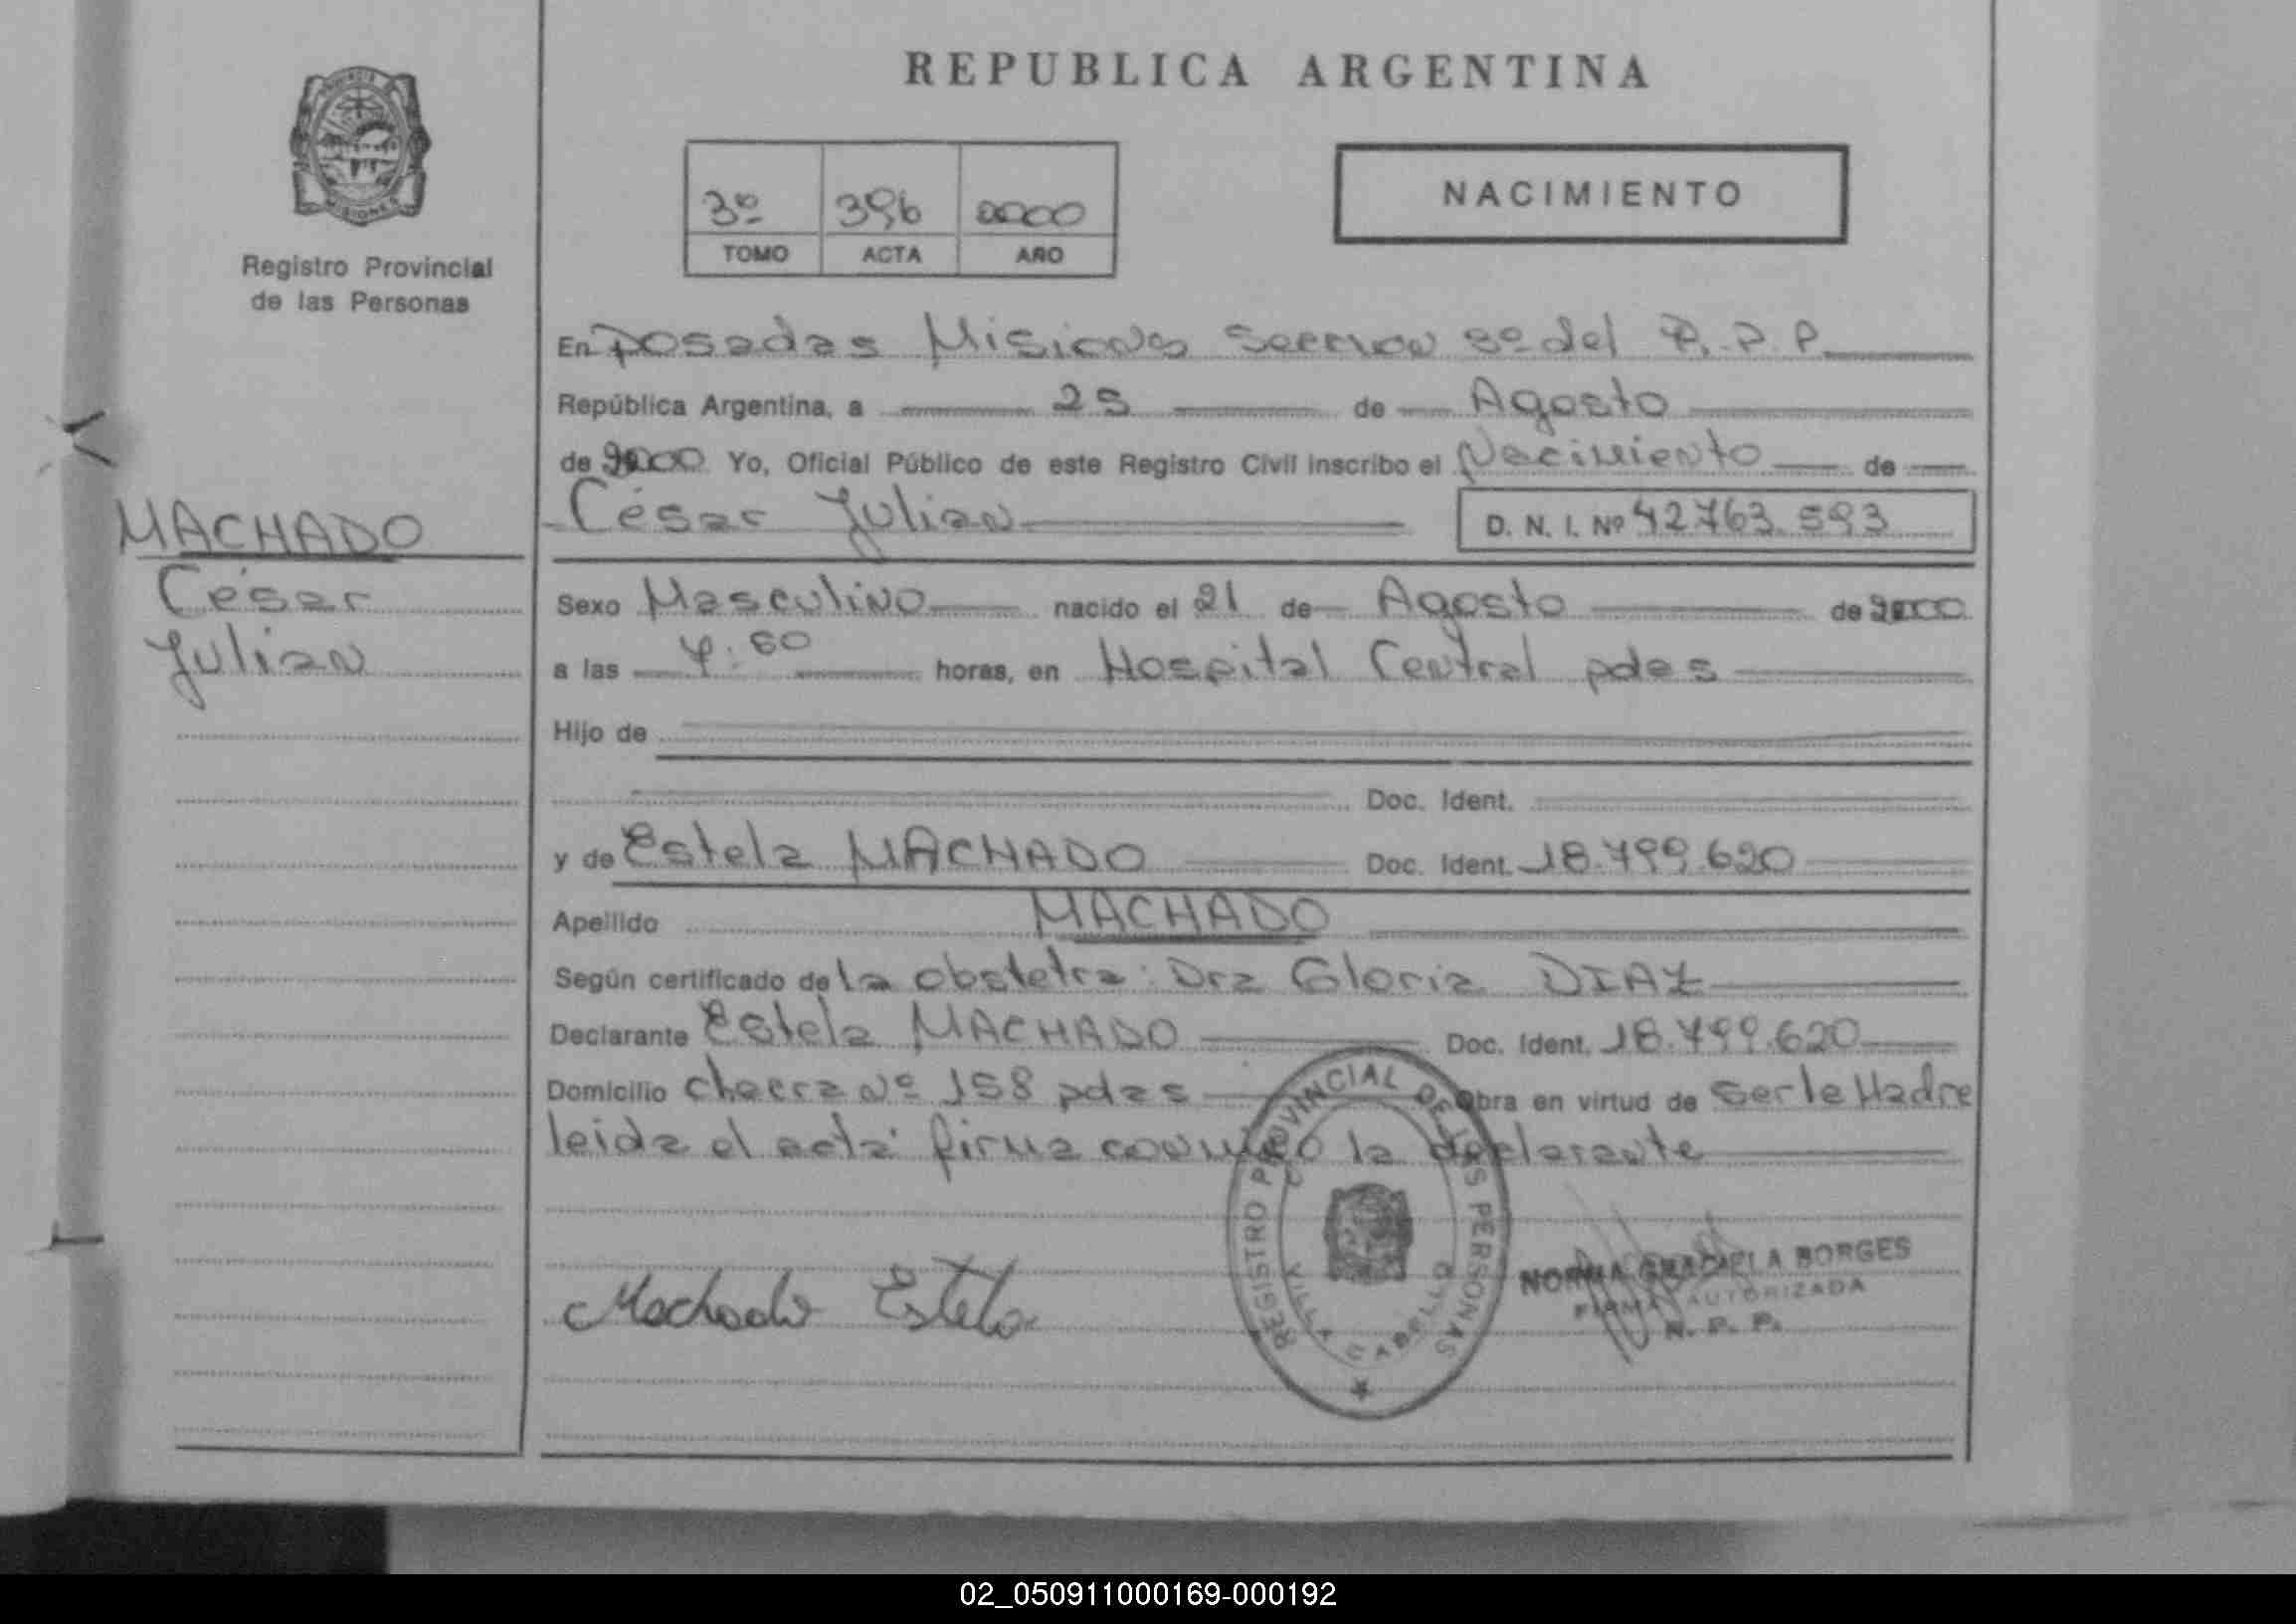 REPUBLICA ARGENTINA
PROVINCIA
MISIONES
Registro Provincial
de las Personas
3º 396 2000
TOMO ACTA AÑO
NACIMIENTO
En Posadas Misiones Seccion 3º del R.P.P.
República Argentina, a 25 de Agosto
de 2000 Yo, Oficial Público de este Registro Civil inscribo el Nacimiento de
César Julian D. N. I. Nº 42.763.593
MACHADO
César
Julian
Sexo Masculino nacido el 21 de Agosto de 2000
a las horas, en Hospital Central pdas
Hijo de
Doc. Ident.
y de Estela MACHADO Doc. Ident. 18.799.620
Apellido MACHADO
Según certificado de la obstetra: Dra Gloria DIAZ
Declarante Estela MACHADO Doc. Ident. 18.799.620
Domicilio chacra Nº 158 pdas Obra en virtud de ser la Madre
leida el acta firma conmigo la declarante
Machado Estela
REGISTRO PROVINCIAL DE LAS PERSONAS
VILLA CABELLO
NORMA GRACIELA BORGES
FIRMA AUTORIZADA
R. P. P.
02_050911000169-000192